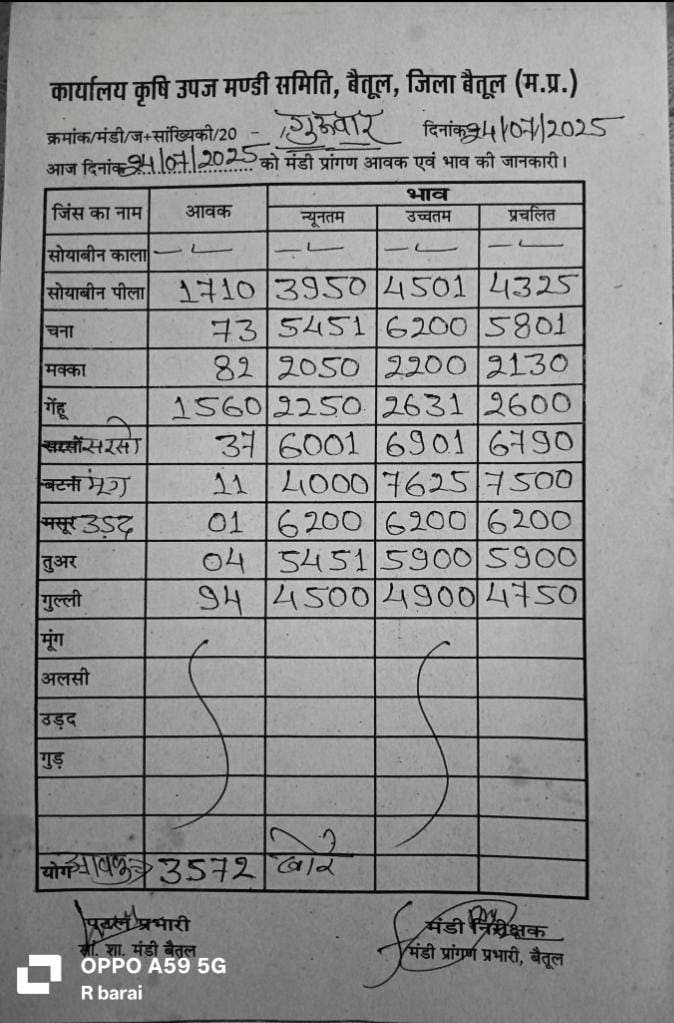 कार्यालय कृषि उपज मण्डी समिति, बैतूल, जिला बैतूल (म.प्र.)
क्रमांक/मंडी/ज+सांख्यिकी/20 - गुरुवार दिनांक 24/07/2025
आज दिनांक 24/07/2025 को मंडी प्रांगण आवक एवं भाव की जानकारी।
जिंस का नाम आवक भाव
न्यूनतम उच्चतम प्रचलित
सोयाबीन काला — — — —
सोयाबीन पीला 1710 3950 4501 4325
चना 73 5451 6200 5801
मक्का 82 2050 2200 2130
गेंहू 1560 2250 2631 2600
सरसों सरसो 37 6001 6901 6790
बटना मूंग 11 4000 7625 7500
मसूर उड़द 01 6200 6200 6200
तुअर 04 5451 5900 5900
गुल्ली 94 4500 4900 4750
मूंग
अलसी
उड़द
गुड़
योग आवक 3572 बोरे
पटल प्रभारी
सां. शा. मंडी बैतूल
मंडी निरीक्षक
मंडी प्रांगण प्रभारी, बैतूल
OPPO A59 5G
R barai